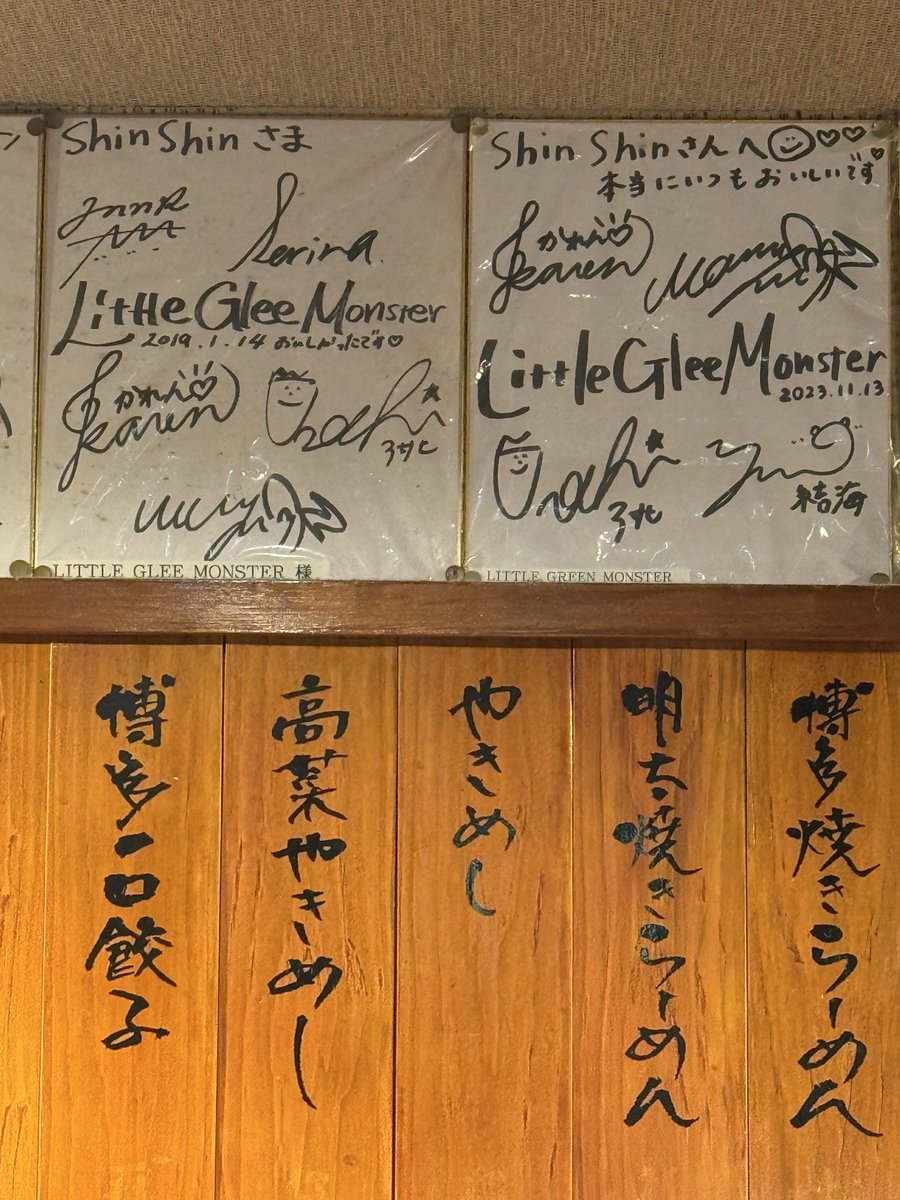 Shin Shin さま
Serina
Little Glee Monster
2019.1.14 おいしかったです♡
かれん♡
Karen
LITTLE GLEE MONSTER 様
Shin Shinさんへ☺♡♡
本当にいつもおいしいです♡
かれん♡
Karen
Little Glee Monster
2023.11.13
結海
LITTLE GREEN MONSTER
博多焼きらーめん
明太焼きらーめん
やきめし
高菜やきめし
博多一口餃子